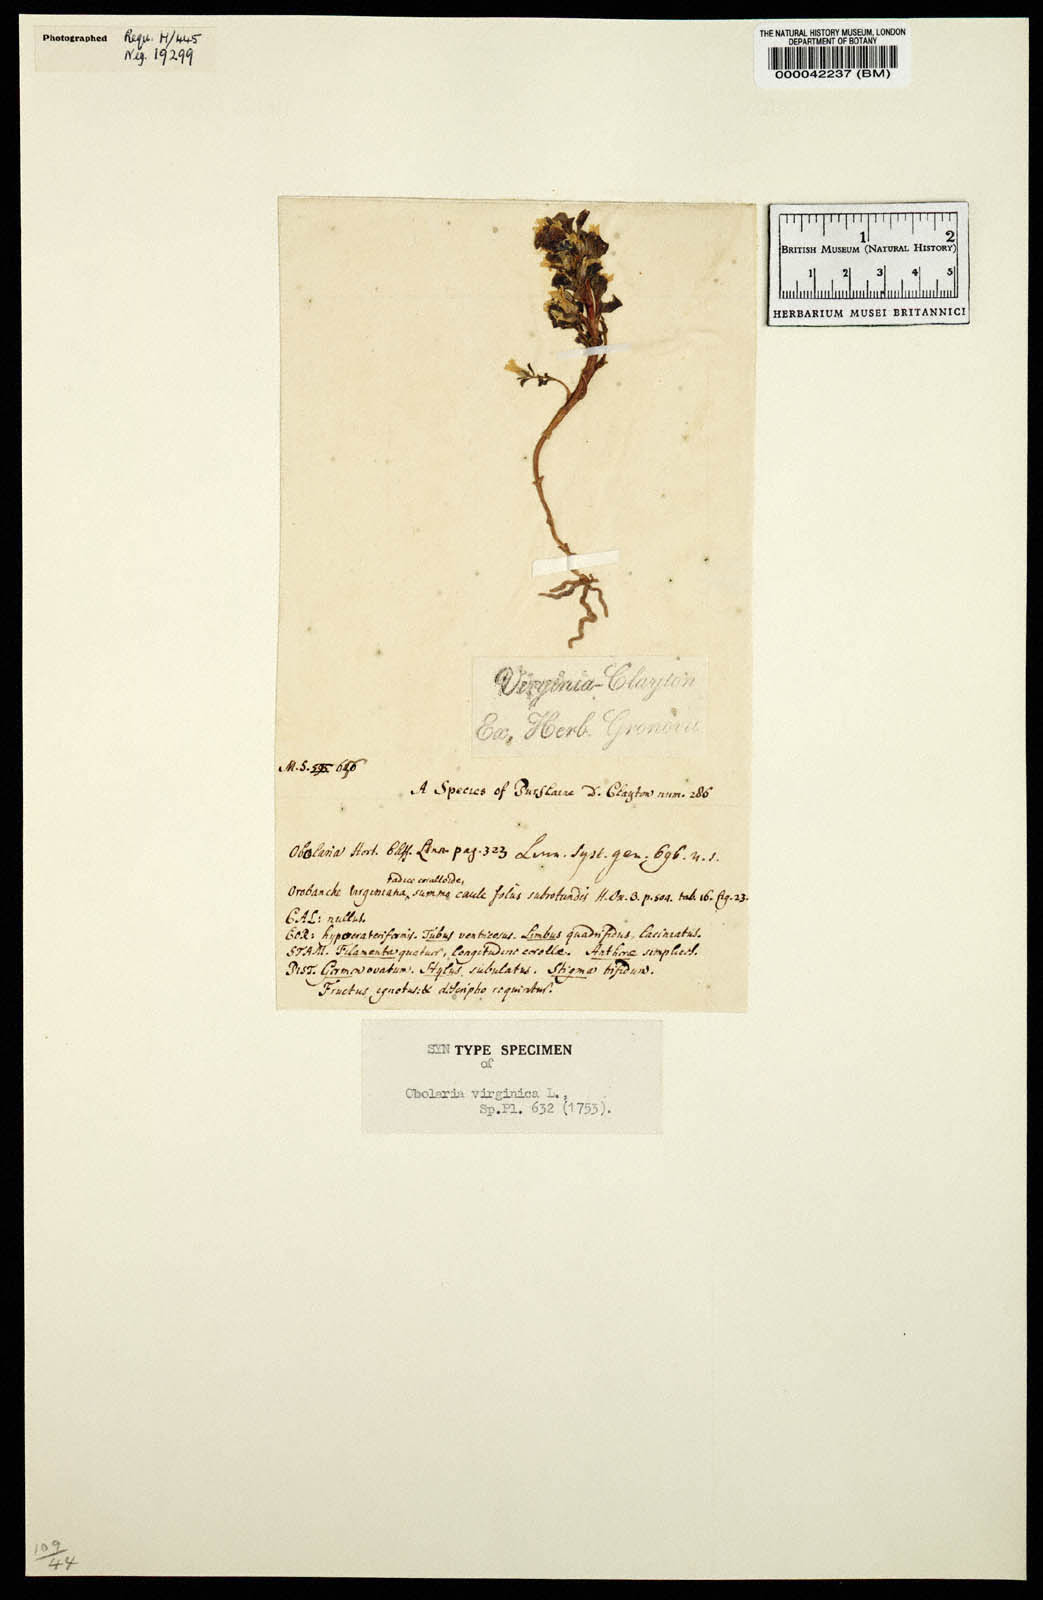 Photographed
Regn. H/445
Neg. 19299
THE NATURAL HISTORY MUSEUM, LONDON
DEPARTMENT OF BOTANY
000042237 (BM)
1 2
BRITISH MUSEUM (NATURAL HISTORY)
1 2 3 4 5
HERBARIUM MUSEI BRITANNICI
Virginia-Clayton
Ex. Herb. Gronovii
M.S.
A Species of Purslane D. Clayton num. 286
Obolaria Hort. Cliff. Linn. pag. 323 Linn. syst. gen. 696. n. s.
radice coralloide,
Orobanche Virginiana, summa caule foliis subrotundis H. Ox. 3. p. 504. tab. 16. fig. 23.
CAL: nullus.
COR: hypocrateriformis. Tubus ventricosus. Limbus quadrifidus, laciniatus.
STAM. Filamenta quatuor, longitudine corollæ. Antheræ simplices.
PIST. Germen ovatum. Stylus subulatus. Stigma bifidum.
Fructus ignotus: & descriptio requiritur.
SYN TYPE SPECIMEN
of
Obolaria virginica L.,
Sp.Pl. 632 (1753).
109
44